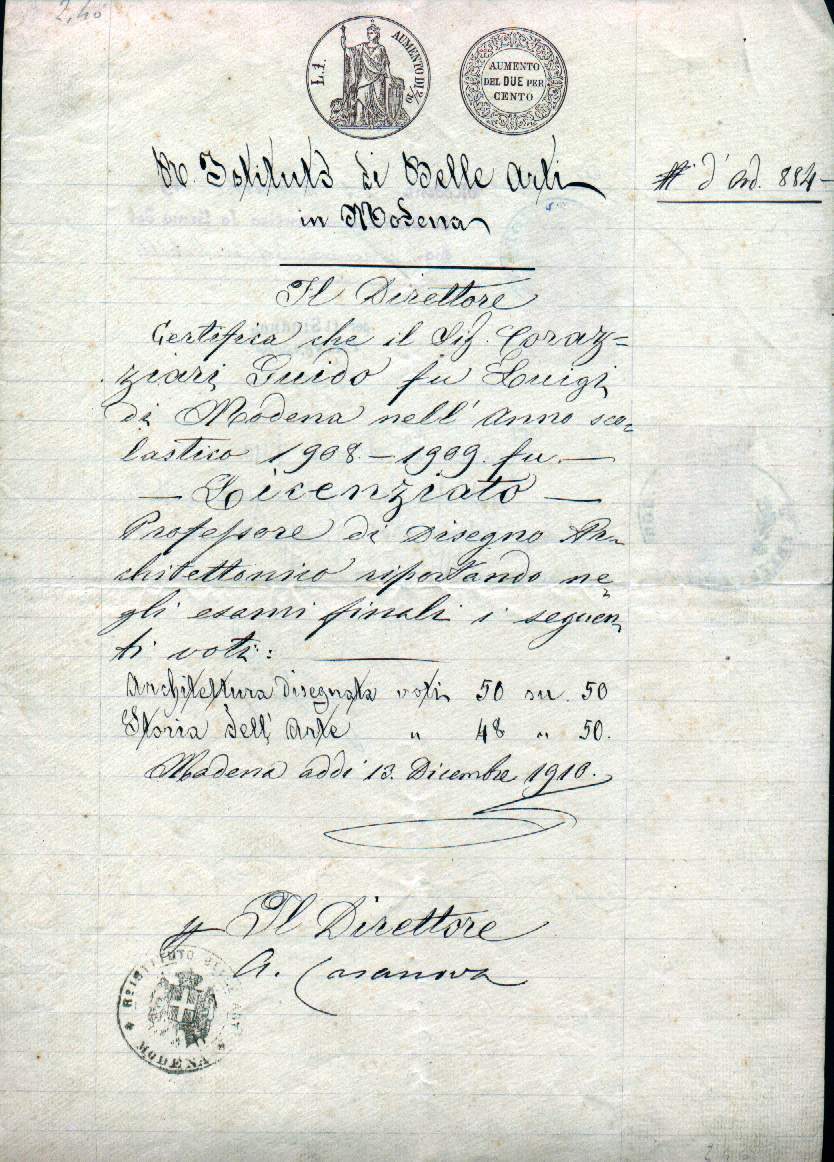 2,40
L.1.
AUMENTO DI 2/10
AUMENTO
DEL DUE PER
CENTO
R. Istituto di Belle Arti
in Modena
N° d'ord. 884
Il Direttore
Certifica che il Sig. Coraz=
ziari Guido fu Luigi
di Modena nell'anno sco-
lastico 1908.-1909. fu.—
— Licenziato —
Professore di Disegno Ar-
chitettonico riportando ne-
gli esami finali i seguen
ti voti:
Architettura disegnata voti 50 su. 50
Storia dell'Arte " 48 " 50.
Modena addi 13. Dicembre 1910.
Il Direttore
A. Casanova
R° ISTITUTO BELLE ARTI
* MODENA *